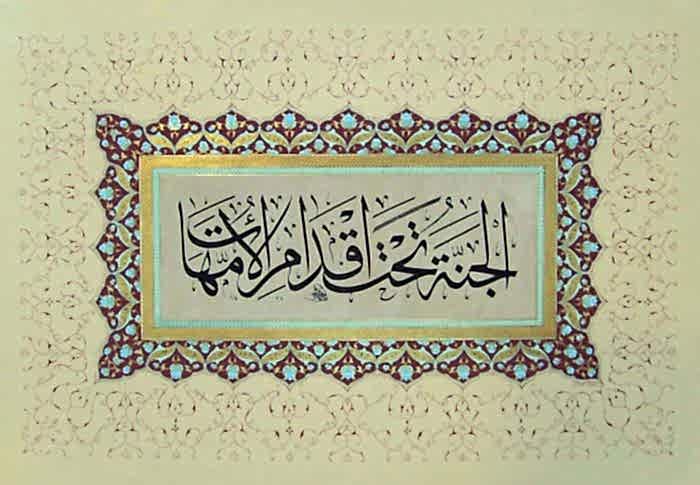 الجنّة تحت اقدام الأمّهات